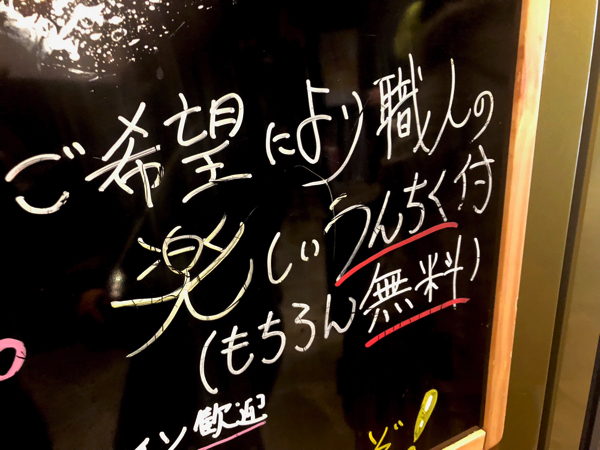 ご希望により職人の
楽しいうんちく付
(もちろん無料)
イン歓迎
ぞ!